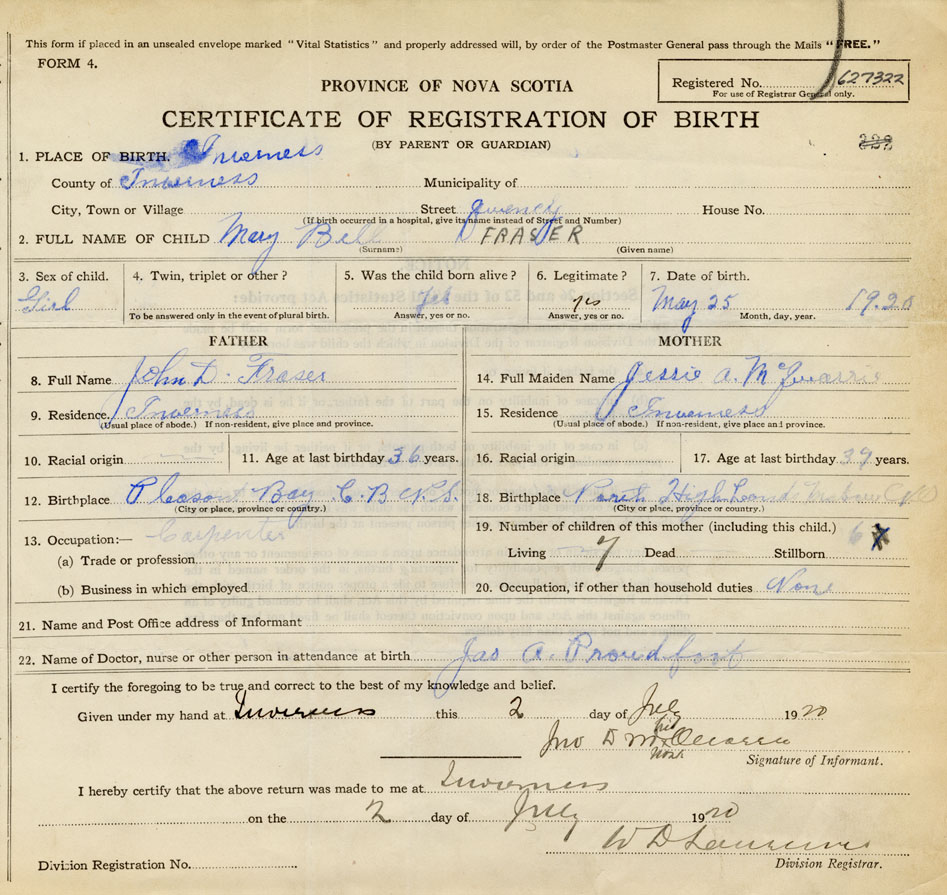 This form if placed in an unsealed envelope marked "Vital Statistics" and properly addressed will, by order of the Postmaster General pass through the Mails "FREE."
FORM 4.
PROVINCE OF NOVA SCOTIA
Registered No. 627322
For use of Registrar General only.
CERTIFICATE OF REGISTRATION OF BIRTH
(BY PARENT OR GUARDIAN)
1. PLACE OF BIRTH. Inverness
County of Inverness Municipality of
City, Town or Village Street House No.
(If birth occurred in a hospital, give its name instead of Street and Number)
2. FULL NAME OF CHILD Mary Bell FRASER
(Surname) (Given name)
3. Sex of child. 4. Twin, triplet or other? 5. Was the child born alive? 6. Legitimate? 7. Date of birth.
Girl Yes yes May 25 1920
To be answered only in the event of plural birth. Answer, yes or no. Answer, yes or no. Month, day, year.
FATHER MOTHER
8. Full Name John D. Fraser 14. Full Maiden Name Jessie A.
9. Residence Inverness 15. Residence Inverness
(Usual place of abode.) If non-resident, give place and province. (Usual place of abode.) If non-resident, give place and province.
10. Racial origin 11. Age at last birthday 36 years. 16. Racial origin 17. Age at last birthday 39 years.
12. Birthplace Pleasant Bay C.B N.S. 18. Birthplace North
(City or place, province or country.) (City or place, province or country.)
13. Occupation:— Carpenter 19. Number of children of this mother (including this child.) 6
(a) Trade or profession Living 7 Dead Stillborn
(b) Business in which employed 20. Occupation, if other than household duties None
21. Name and Post Office address of Informant
22. Name of Doctor, nurse or other person in attendance at birth Jas A. Proudfoot
I certify the foregoing to be true and correct to the best of my knowledge and belief.
Given under my hand at Inverness this 2 day of July 1920
Jno D his
mark
Signature of Informant.
I hereby certify that the above return was made to me at Inverness
on the 2 day of July 1920
W D
Division Registration No. Division Registrar.